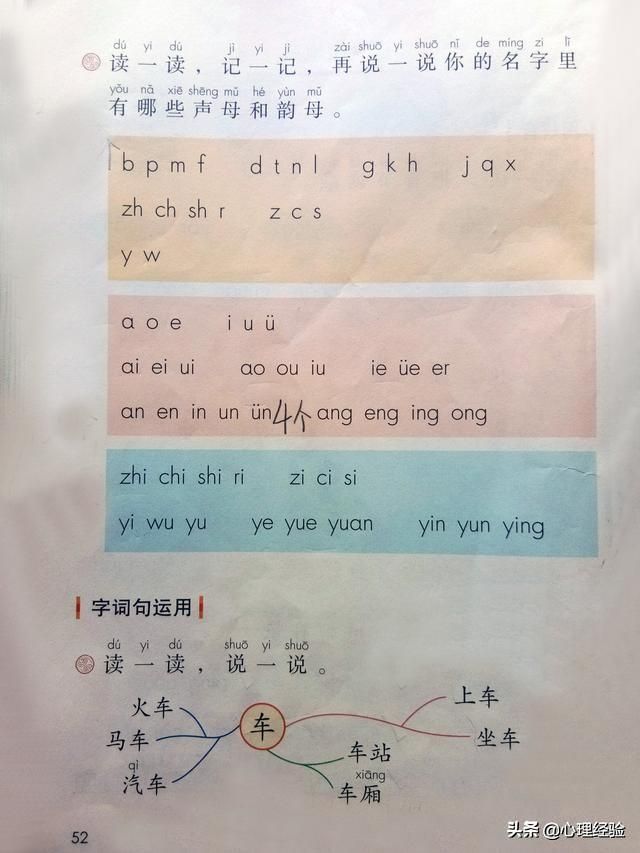 dú yi dú jì yi jì zài shuō yi shuō nǐ de míng zi lǐ
读一读，记一记，再说一说你的名字里
yǒu nǎ xiē shēng mǔ hé yùn mǔ
有哪些声母和韵母。
b p m f d t n l g k h j q x
zh ch sh r z c s
y w
ɑ o e i u ü
ɑi ei ui ɑo ou iu ie üe er
ɑn en in un ün 4个 ɑng eng ing ong
zhi chi shi ri zi ci si
yi wu yu ye yue yuɑn yin yun ying
字词句运用
dú yi dú shuō yi shuō
读一读，说一说。
火车
马车
qì
汽车
车
上车
坐车
车站
xiāng
车厢
52
头条 @心理经验